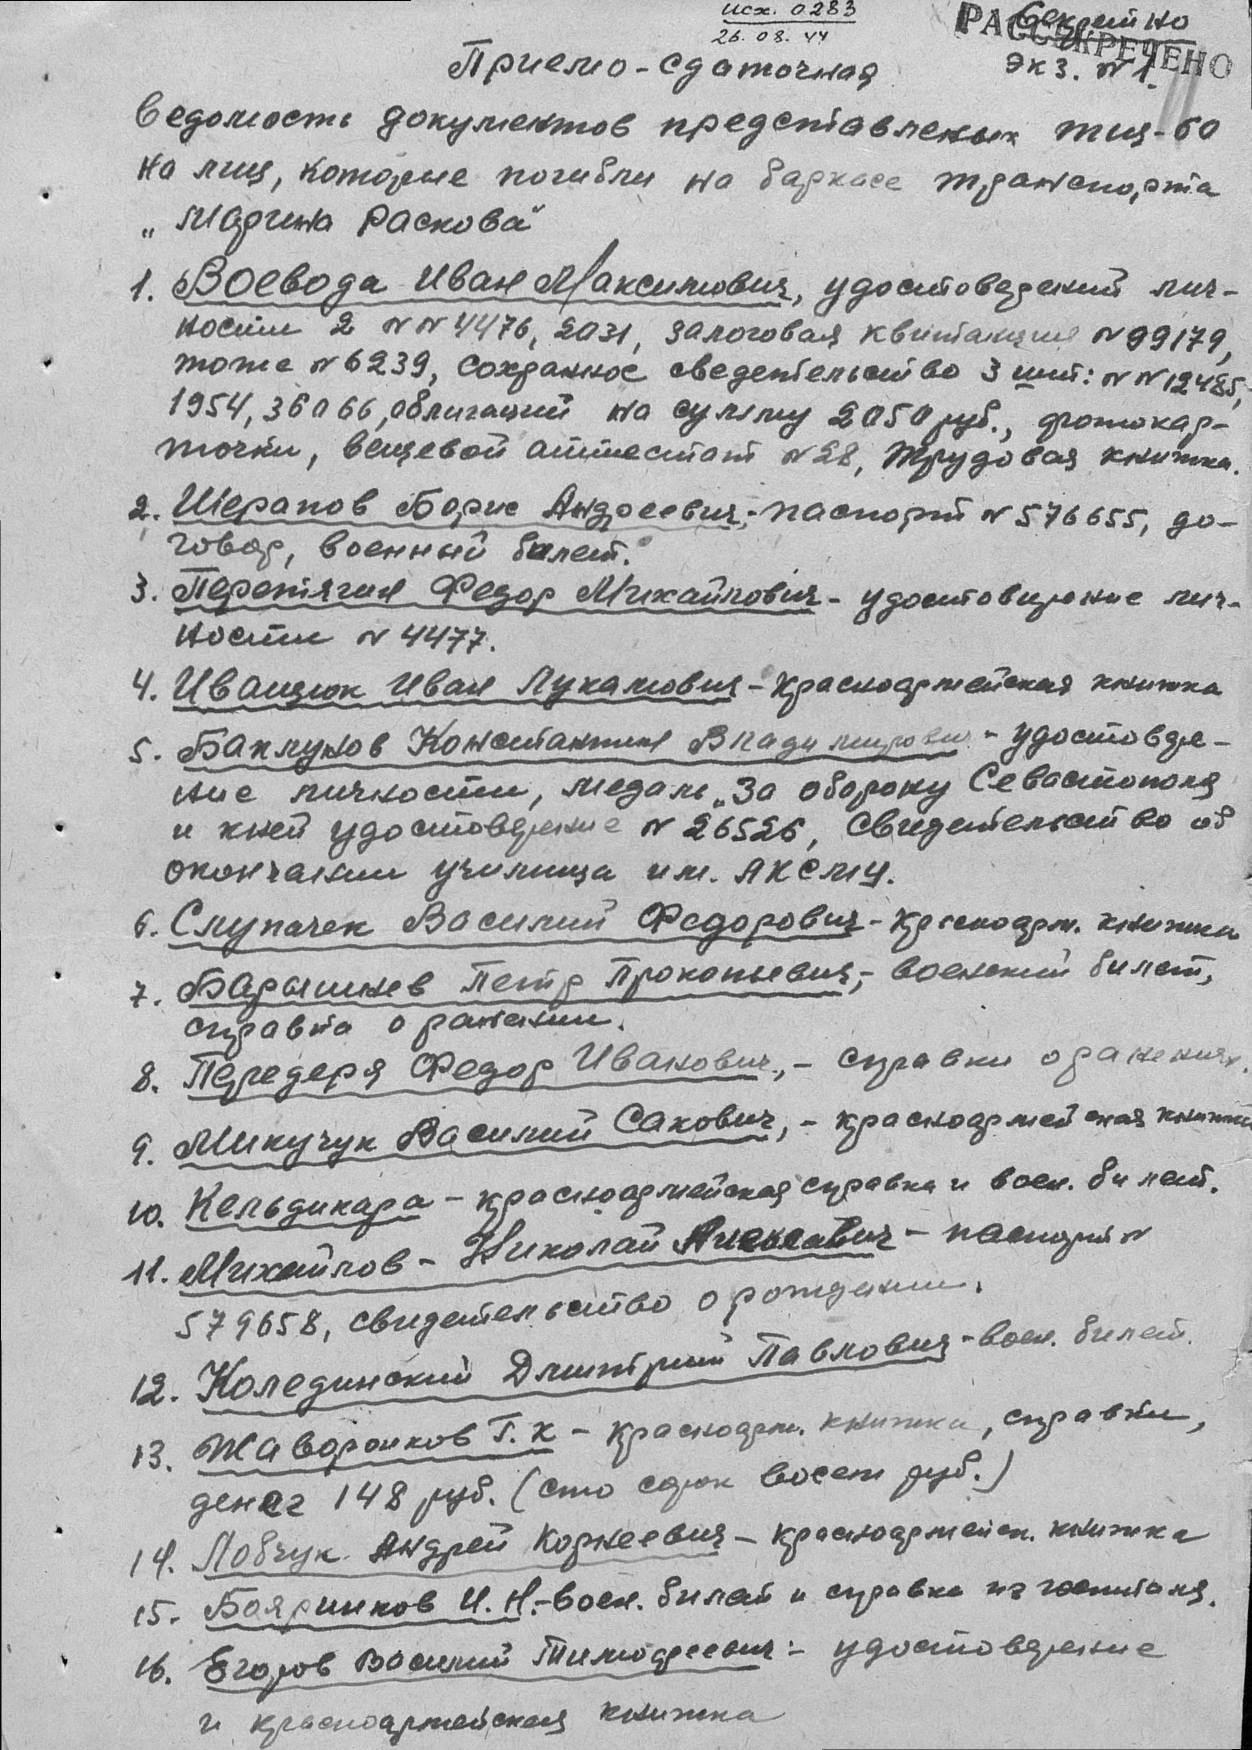 исх. 0283
26.08.44
Секретно
РАССЕКРЕЧЕНО
Экз. №1.
Приемо-сдаточная
ведомость документов представленых тщ-60
на лиц, которые погибли на баркасе транспорта
„Марина Раскова"
1. Воевода Иван Максимович, удостоверений лич-
ности 2 №№ 4476, 2031, залоговая квитанция №99179,
тоже №6239, сохранное сведетельство 3 шт: №№12485,
1954, 36066, облигаций на сумму 2050 руб., фотокар-
точки, вещевой аттестат №28, трудовая книжка.
2. Шерапов Борис Андреевич,- паспорт №576655, до-
говор, военный билет.
3. Перетягин Федор Михайлович - удостоверение лич-
ности №4477.
4. Иващюк Иван Лукамович - красноармейская книжка
5. Баклунов Константин Владимирович - удостовере-
ние личности, медаль „За оборону Севастополя
и к ней удостоверение №26526, свидетельство об
окончании училища им. ЛКСМУ.
6. Слупачек Василий Федорович - красноарм. книжка
7. Барышнев Петр Прокопьевич,- военный билет,
справка о ранении.
8. Передеря Федор Иванович,- справки о ранениях.
9. Микучук Василий Сакович,- красноармейская книжка
10. Кельдикара - красноармейская справка и воен. билет.
11. Михайлов - Николай - паспорт №
579658, свидетельство о рождении.
12. Колединский Дмитрий Павлович - воен. билет.
13. Жаворонков Г.К - красноарм. книжка, справки,
денег 148 руб. (сто сорок восем руб.)
14. Ловчук Андрей Корнеевич - красноармейск. книжка
15. Бояринков И.Н.-воен. билет и справка из госпиталя.
16. Егоров Василий Тимофеевич:- удостоверение
и красноармейская книжка